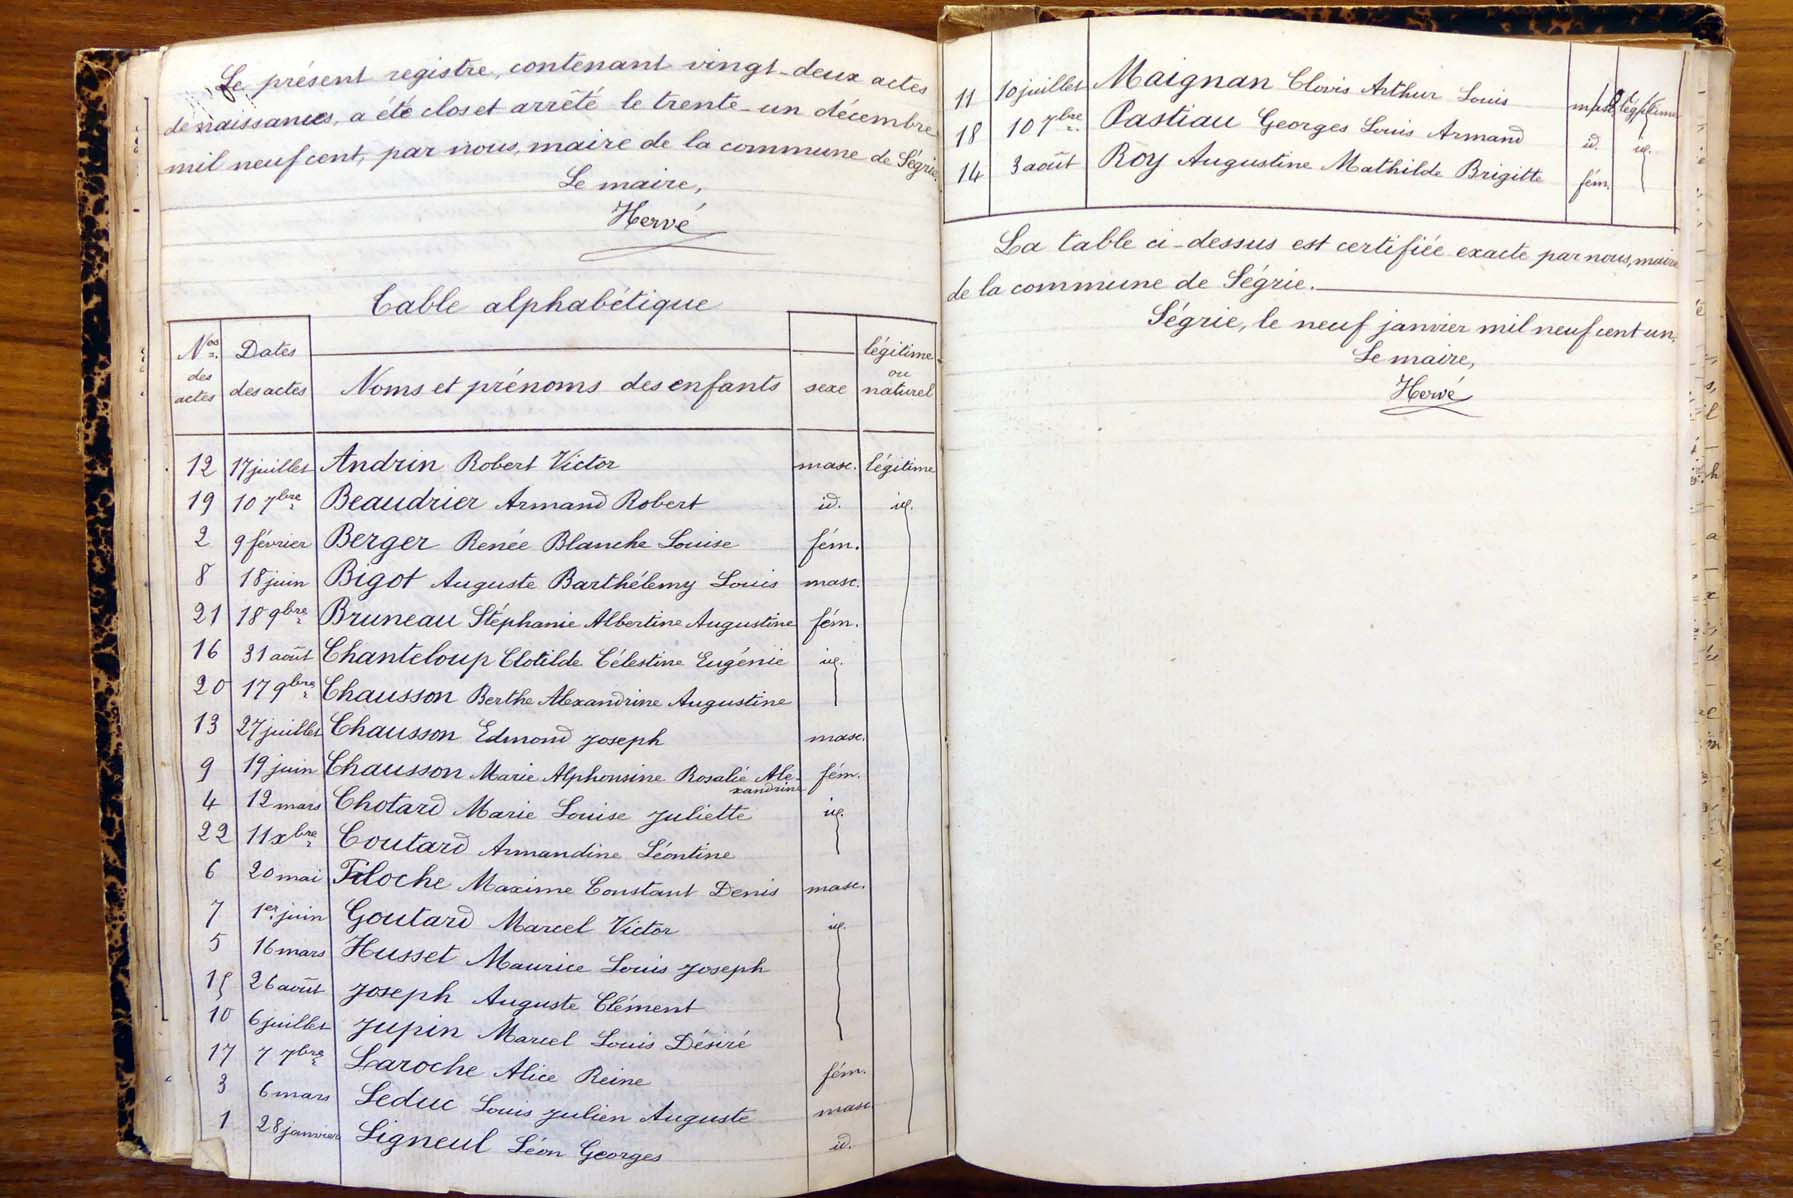 Le présent registre, contenant vingt-deux actes
de naissances, a été clos et arrêté le trente-un décembre
mil neuf cent, par nous, maire de la commune de Ségrie.
Le maire,
Hervé
Table alphabétique
Nos des actes Dates des actes Noms et prénoms des enfants sexe légitime ou naturel
12 17 juillet Andrin Robert Victor masc. légitime
19 10 7bre Beaudrier Armand Robert id. id.
2 9 février Berger Renée Blanche Louise fém.
8 18 juin Bigot Auguste Barthélemy Louis masc.
21 18 9bre Bruneau Stéphanie Albertine Augustine fém.
16 31 août Chanteloup Clotilde Célestine Eugénie id.
20 17 9bre Chausson Berthe Alexandrine Augustine
13 27 juillet Chausson Edmond Joseph masc.
9 19 juin Chausson Marie Alphonsine Rosalie Ale-
xandrine fém.
4 12 mars Chotard Marie Louise Juliette id.
22 11 xbre Coutard Armandine Léontine
6 20 mai Filoche Maxime Constant Denis masc.
7 1er juin Goutard Marcel Victor id.
5 16 mars Husset Maurice Louis Joseph
15 26 août Joseph Auguste Clément
10 6 juillet Jupin Marcel Louis Désiré
17 7 7bre Laroche Alice Reine fém.
3 6 mars Leduc Louis Julien Auguste masc.
1 28 janvier Ligneul Léon Georges id.
11 10 juillet Maignan Clovis Arthur Louis masc. légitime
18 10 7bre Pastiau Georges Louis Armand id. id.
14 3 août Roy Augustine Mathilde Brigitte fém.
La table ci-dessus est certifiée exacte par nous, maire
de la commune de Ségrie.
Ségrie, le neuf janvier mil neuf cent un.
Le maire,
Hervé